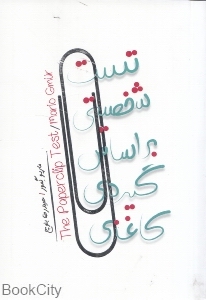 تست
شخصیتی
بر اساس
گیره‌ی
کاغذی
The Paperclip Test/mario Gmür
BookCity